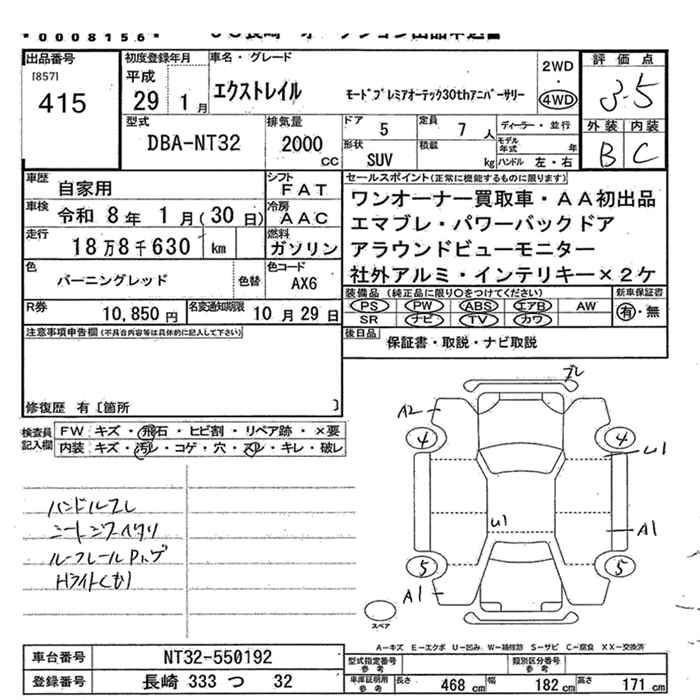 00008156 JU長崎 オークション出品申込書
出品番号
[857]
415
初度登録年月
平成
29 1月
車名・グレード
エクストレイル
モードプレミアオーテック30thアニバーサリー
2WD
・
4WD
評価点
3.5
外装 内装
B C
型式
DBA-NT32
排気量
2000
cc
ドア
5
定員
7 人
ディーラー・並行
モデル年式 年
形状
SUV
積載
kg
ハンドル 左・右
車歴
自家用
シフト
FAT
車検
令和 8年 1月(30日)
冷房
AAC
走行
18万8千630 km
燃料
ガソリン
色
バーニングレッド
色替
色コード
AX6
R券
10,850円
名変通知期限
10月29日
セールスポイント(正常に機能するものに限ります)
ワンオーナー買取車・AA初出品
エマブレ・パワーバックドア
アラウンドビューモニター
社外アルミ・インテリキー×2ケ
装備品(純正品に限り○をつけてください)
PS PW ABS エアB AW
SR ナビ TV カワ
新車保証書
有・無
後日品
保証書・取説・ナビ取説
注意事項申告欄(不具合内容等は具体的に記入して下さい)
修復歴 有〔箇所 〕
検査員
記入欄
FW キズ・飛石・ヒビ割・リペア跡・×要
内装 キズ・汚レ・コゲ・穴・スレ・キレ・破レ
ハンドルスレ
シートシワヘタリ
Hライトくもり
A2
4
4
U1
U1
A1
5
5
A1
スペア
A-キズ E-エクボ U-凹み W-補修跡 S-サビ C-腐食 XX-交換済
車台番号
NT32-550192
登録番号
長崎 333 つ 32
型式指定番号
参考
類別区分番号
参考
車庫証明用
参考
長さ 468 cm
幅 182 cm
高さ 171 cm